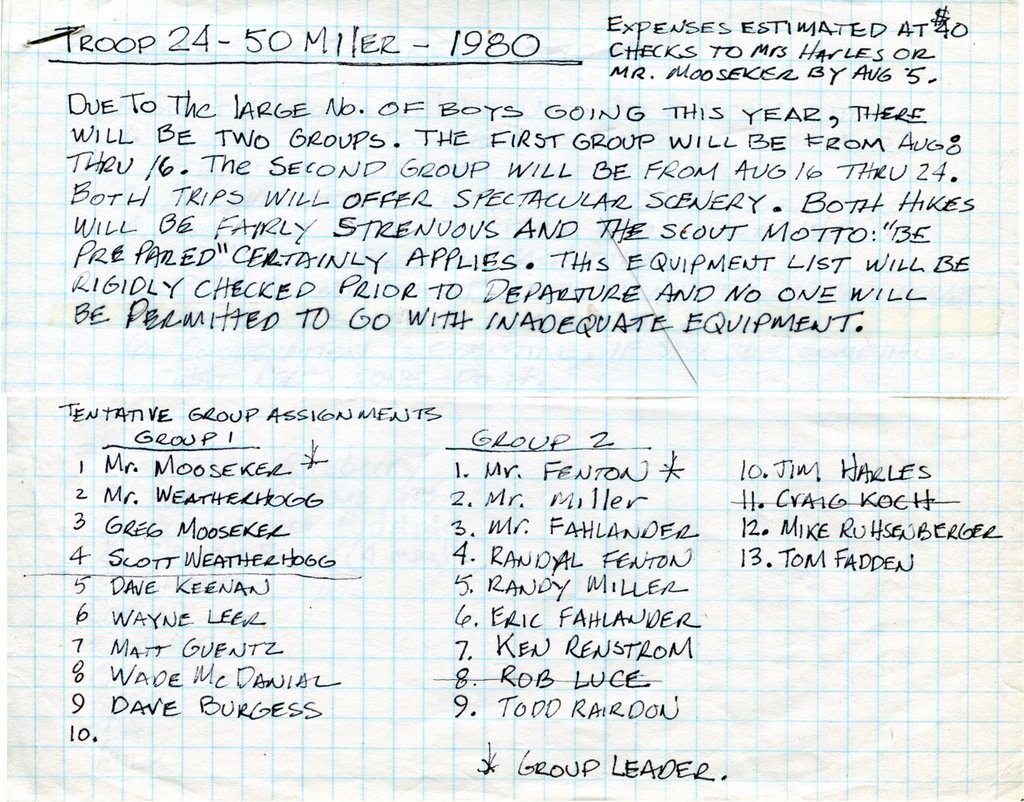 TROOP 24 - 50 MILER - 1980
EXPENSES ESTIMATED AT $40
CHECKS TO MRS HARLES OR
MR. MOOSEKER BY AUG 5.
DUE TO THE LARGE NO. OF BOYS GOING THIS YEAR, THERE
WILL BE TWO GROUPS. THE FIRST GROUP WILL BE FROM AUG 8
THRU 16. THE SECOND GROUP WILL BE FROM AUG 16 THRU 24.
BOTH TRIPS WILL OFFER SPECTACULAR SCENERY. BOTH HIKES
WILL BE FAIRLY STRENUOUS AND THE SCOUT MOTTO: "BE
PREPARED" CERTAINLY APPLIES. THIS EQUIPMENT LIST WILL BE
RIGIDLY CHECKED PRIOR TO DEPARTURE AND NO ONE WILL
BE PERMITTED TO GO WITH INADEQUATE EQUIPMENT.
TENTATIVE GROUP ASSIGNMENTS
GROUP 1
1 Mr. MOOSEKER *
2 Mr. WEATHERHOGG
3 GREG MOOSEKER
4 SCOTT WEATHERHOGG
5 DAVE KEENAN
6 WAYNE LEER
7 MATT GUENTZ
8 WADE McDANIAL
9 DAVE BURGESS
10.
GROUP 2
1. Mr. FENTON *
2. Mr. Miller
3. Mr. FAHLANDER
4. RANDAL FENTON
5. RANDY MILLER
6. ERIC FAHLANDER
7. KEN RENSTROM
8. ROB LUCE
9. TODD RAIRDON
10. JIM HARLES
11. CRAIG KOCH
12. MIKE RUHSENBERGER
13. TOM FADDEN
* GROUP LEADER.